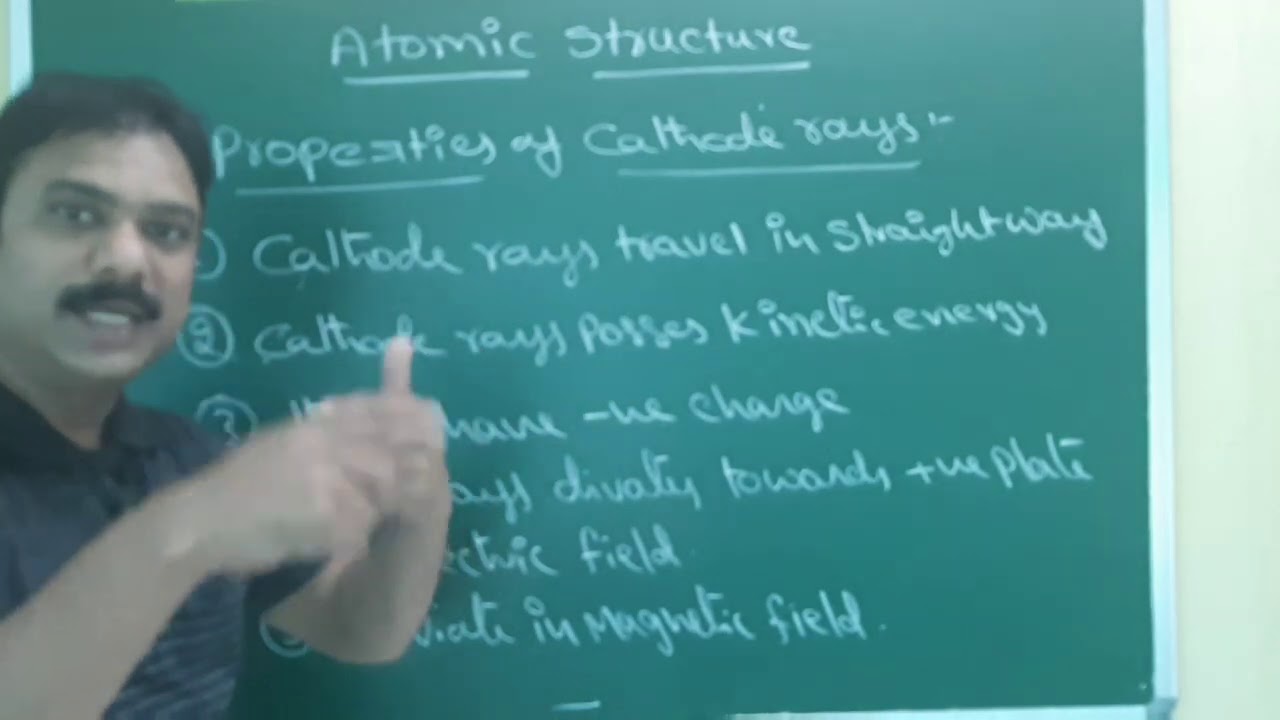 Atomic Structure
Properties of Cathode rays :-
Cathode rays travel in straight way
② Cathode rays Posses kinetic energy
③ have -ve charge
towards +ve plate
field
in Magnetic field.